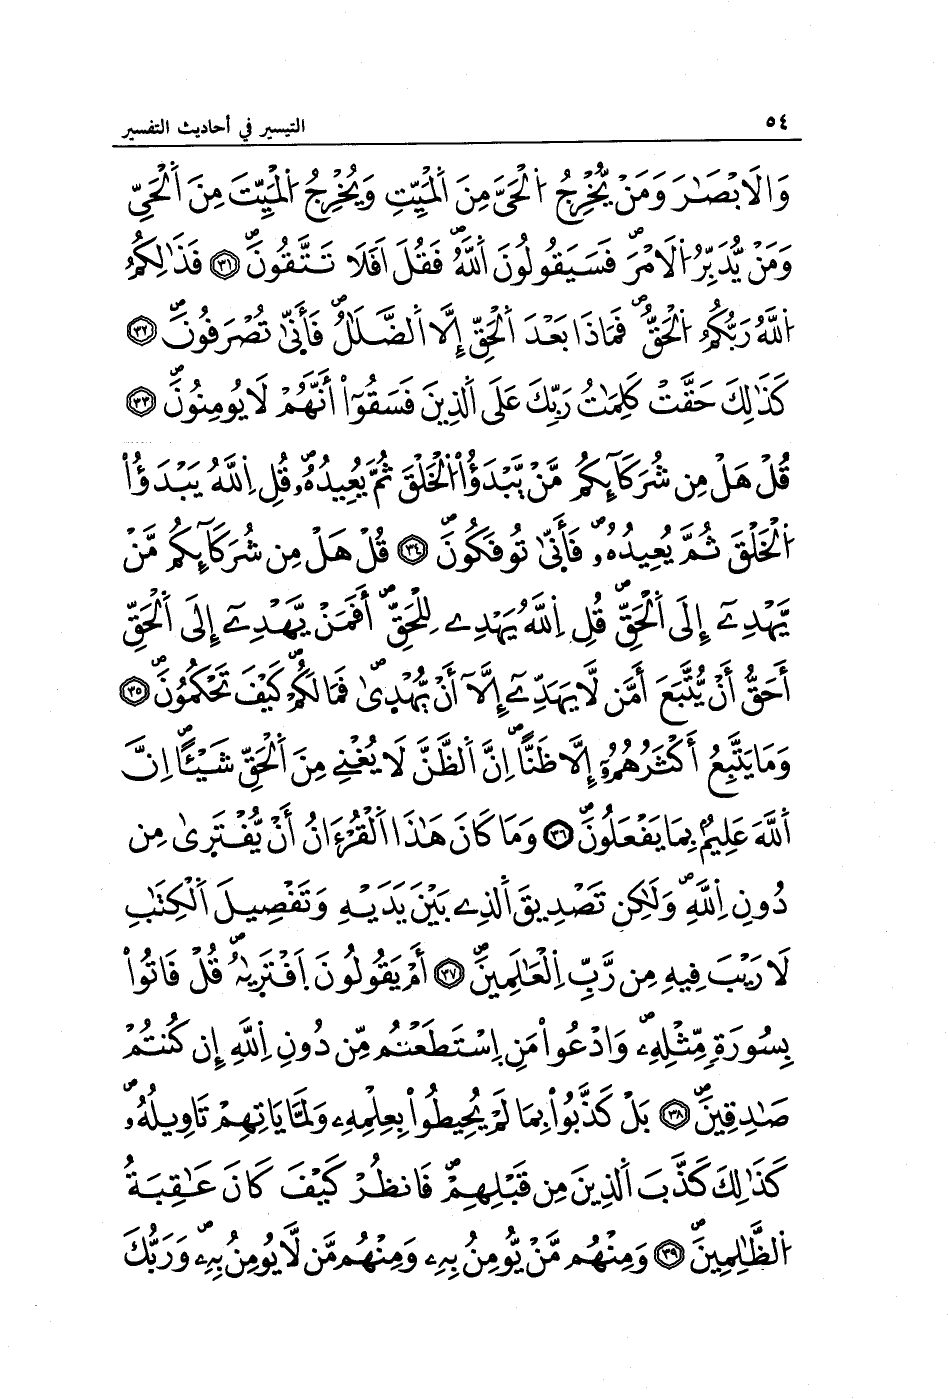 ٥٤
التيسير في أحاديث التفسير
وَالَابْصَٰرَ وَمَنْ يُّخْرِجُ اُ۬لْحَيَّ مِنَ اَ۬لْمَيِّتِ وَيُخْرِجُ اُ۬لْمَيِّتَ مِنَ اَ۬لْحَيِّ
وَمَنْ يُّدَبِّرُ اُ۬لَامْرَۖ فَسَيَقُولُونَ اَ۬للَّهُۖ فَقُلَ اَفَلَا تَتَّقُونَۖ ٣١ فَذَٰلِكُمُ
اُ۬للَّهُ رَبُّكُمُ اُ۬لْحَقُّۖ فَمَاذَا بَعْدَ اَ۬لْحَقِّ إِلَّا اَ۬لضَّلَٰلُۖ فَأَنّ۪يٰ تُصْرَفُونَۖ ٣٢
كَذَٰلِكَ حَقَّتْ كَلِمَٰتُ رَبِّكَ عَلَى اَ۬لذِينَ فَسَقُوٓاْ أَنَّهُمْ لَا يُومِنُونَۖ ٣٣
قُلْ هَلْ مِن شُرَكَآئِكُم مَّنْ يَّبْدَؤُاْ اُ۬لْخَلْقَ ثُمَّ يُعِيدُهُۥۖ قُلِ اِ۬للَّهُ يَبْدَؤُاْ
اُ۬لْخَلْقَ ثُمَّ يُعِيدُهُۥۖ فَأَنّ۪يٰ تُوفَكُونَۖ ٣٤ قُلْ هَلْ مِن شُرَكَآئِكُم مَّنْ
يَّهْدِےٓ إِلَى اَ۬لْحَقِّۖ قُلِ اِ۬للَّهُ يَهْدِے لِلْحَقِّۖ أَفَمَنْ يَّهْدِےٓ إِلَى اَ۬لْحَقِّ
أَحَقُّ أَنْ يُّتَّبَعَ أَمَّن لَّا يَهَدِّےٓ إِلَّآ أَنْ يُّهْد۪يٰۖ فَمَا لَكُمْ كَيْفَ تَحْكُمُونَۖ ٣٥
وَمَا يَتَّبِعُ أَكْثَرُهُمُۥٓ إِلَّا ظَنّاًۖ اِنَّ اَ۬لظَّنَّ لَا يُغْنِے مِنَ اَ۬لْحَقِّ شَيْـٔاًۖ اِنَّ
اَ۬للَّهَ عَلِيمٌۢ بِمَا يَفْعَلُونَۖ ٣٦ وَمَا كَانَ هَٰذَا اَ۬لْقُرْءَانُ أَنْ يُّفْتَر۪يٰ مِن
دُونِ اِ۬للَّهِۖ وَلَٰكِن تَصْدِيقَ اَ۬لذِے بَيْنَ يَدَيْهِ وَتَفْصِيلَ اَ۬لْكِتَٰبِ
لَا رَيْبَ فِيهِ مِن رَّبِّ اِ۬لْعَٰلَمِينَۖ ٣٧ أَمْ يَقُولُونَ اَ۪فْتَر۪يٰهُۖ قُلْ فَاتُواْ
بِسُورَةٖ مِّثْلِهِۦۖ وَادْعُواْ مَنِ اِ۪سْتَطَعْتُم مِّن دُونِ اِ۬للَّهِ إِن كُنتُمْ
صَٰدِقِينَۖ ٣٨ بَلْ كَذَّبُواْ بِمَا لَمْ يُحِيطُواْ بِعِلْمِهِۦ وَلَمَّا يَاتِهِمْ تَاوِيلُهُۥۖ
كَذَٰلِكَ كَذَّبَ اَ۬لذِينَ مِن قَبْلِهِمْۖ فَانظُرْ كَيْفَ كَانَ عَٰقِبَةُ
اُ۬لظَّٰلِمِينَۖ ٣٩ وَمِنْهُم مَّنْ يُّومِنُ بِهِۦ وَمِنْهُم مَّن لَّا يُومِنُ بِهِۦۖ وَرَبُّكَ